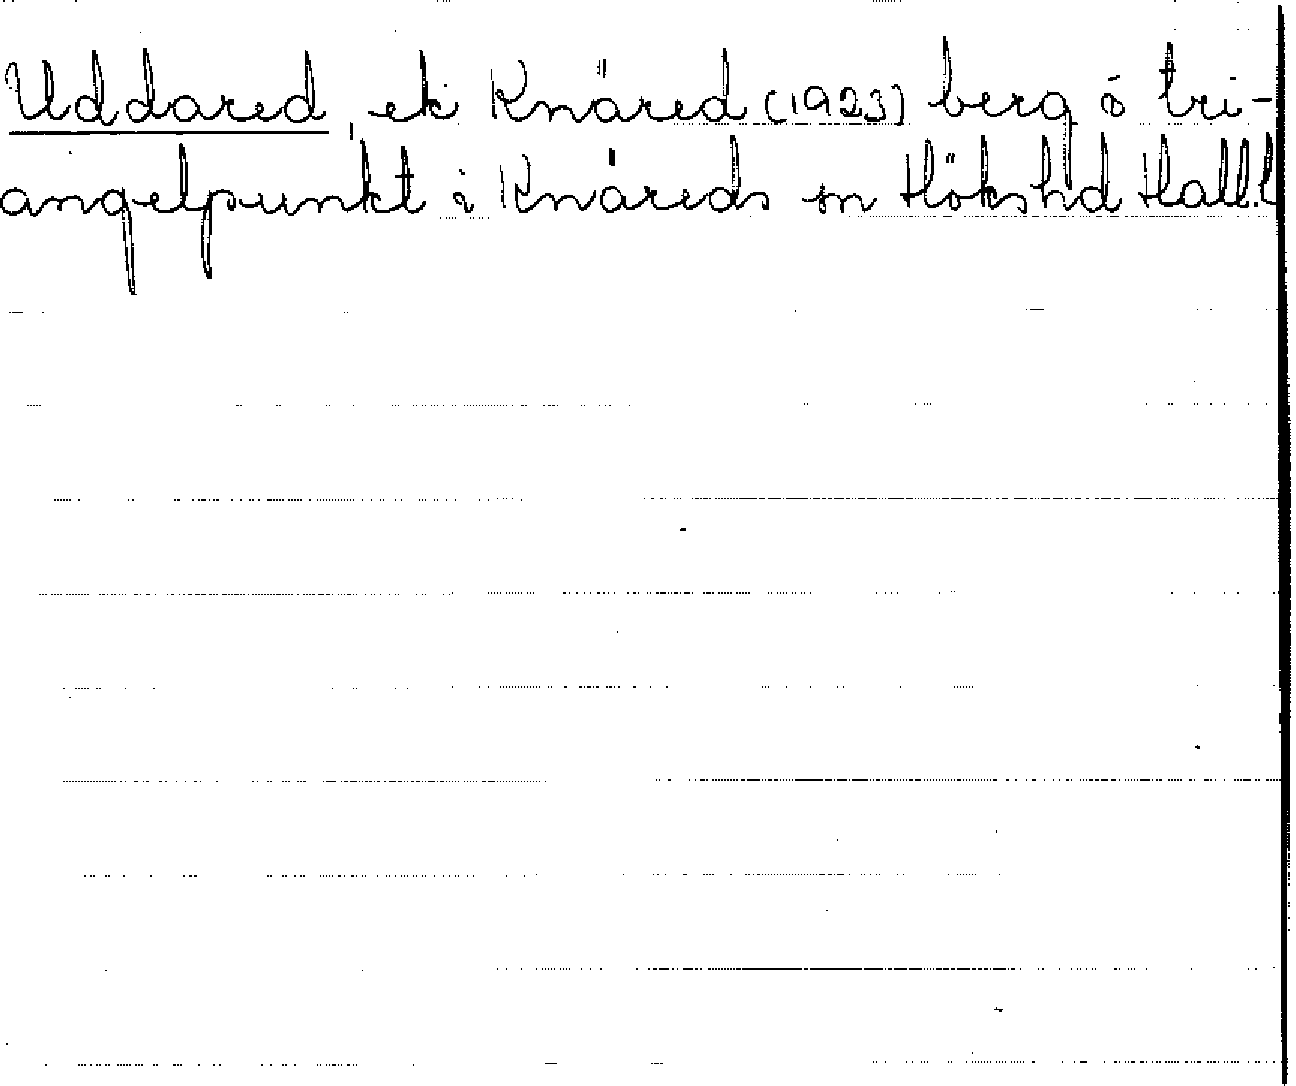 Uddared, ek Knäred (1923) berg ó tri-
angelpunkt i Knäreds sn Hökshd Hall.l